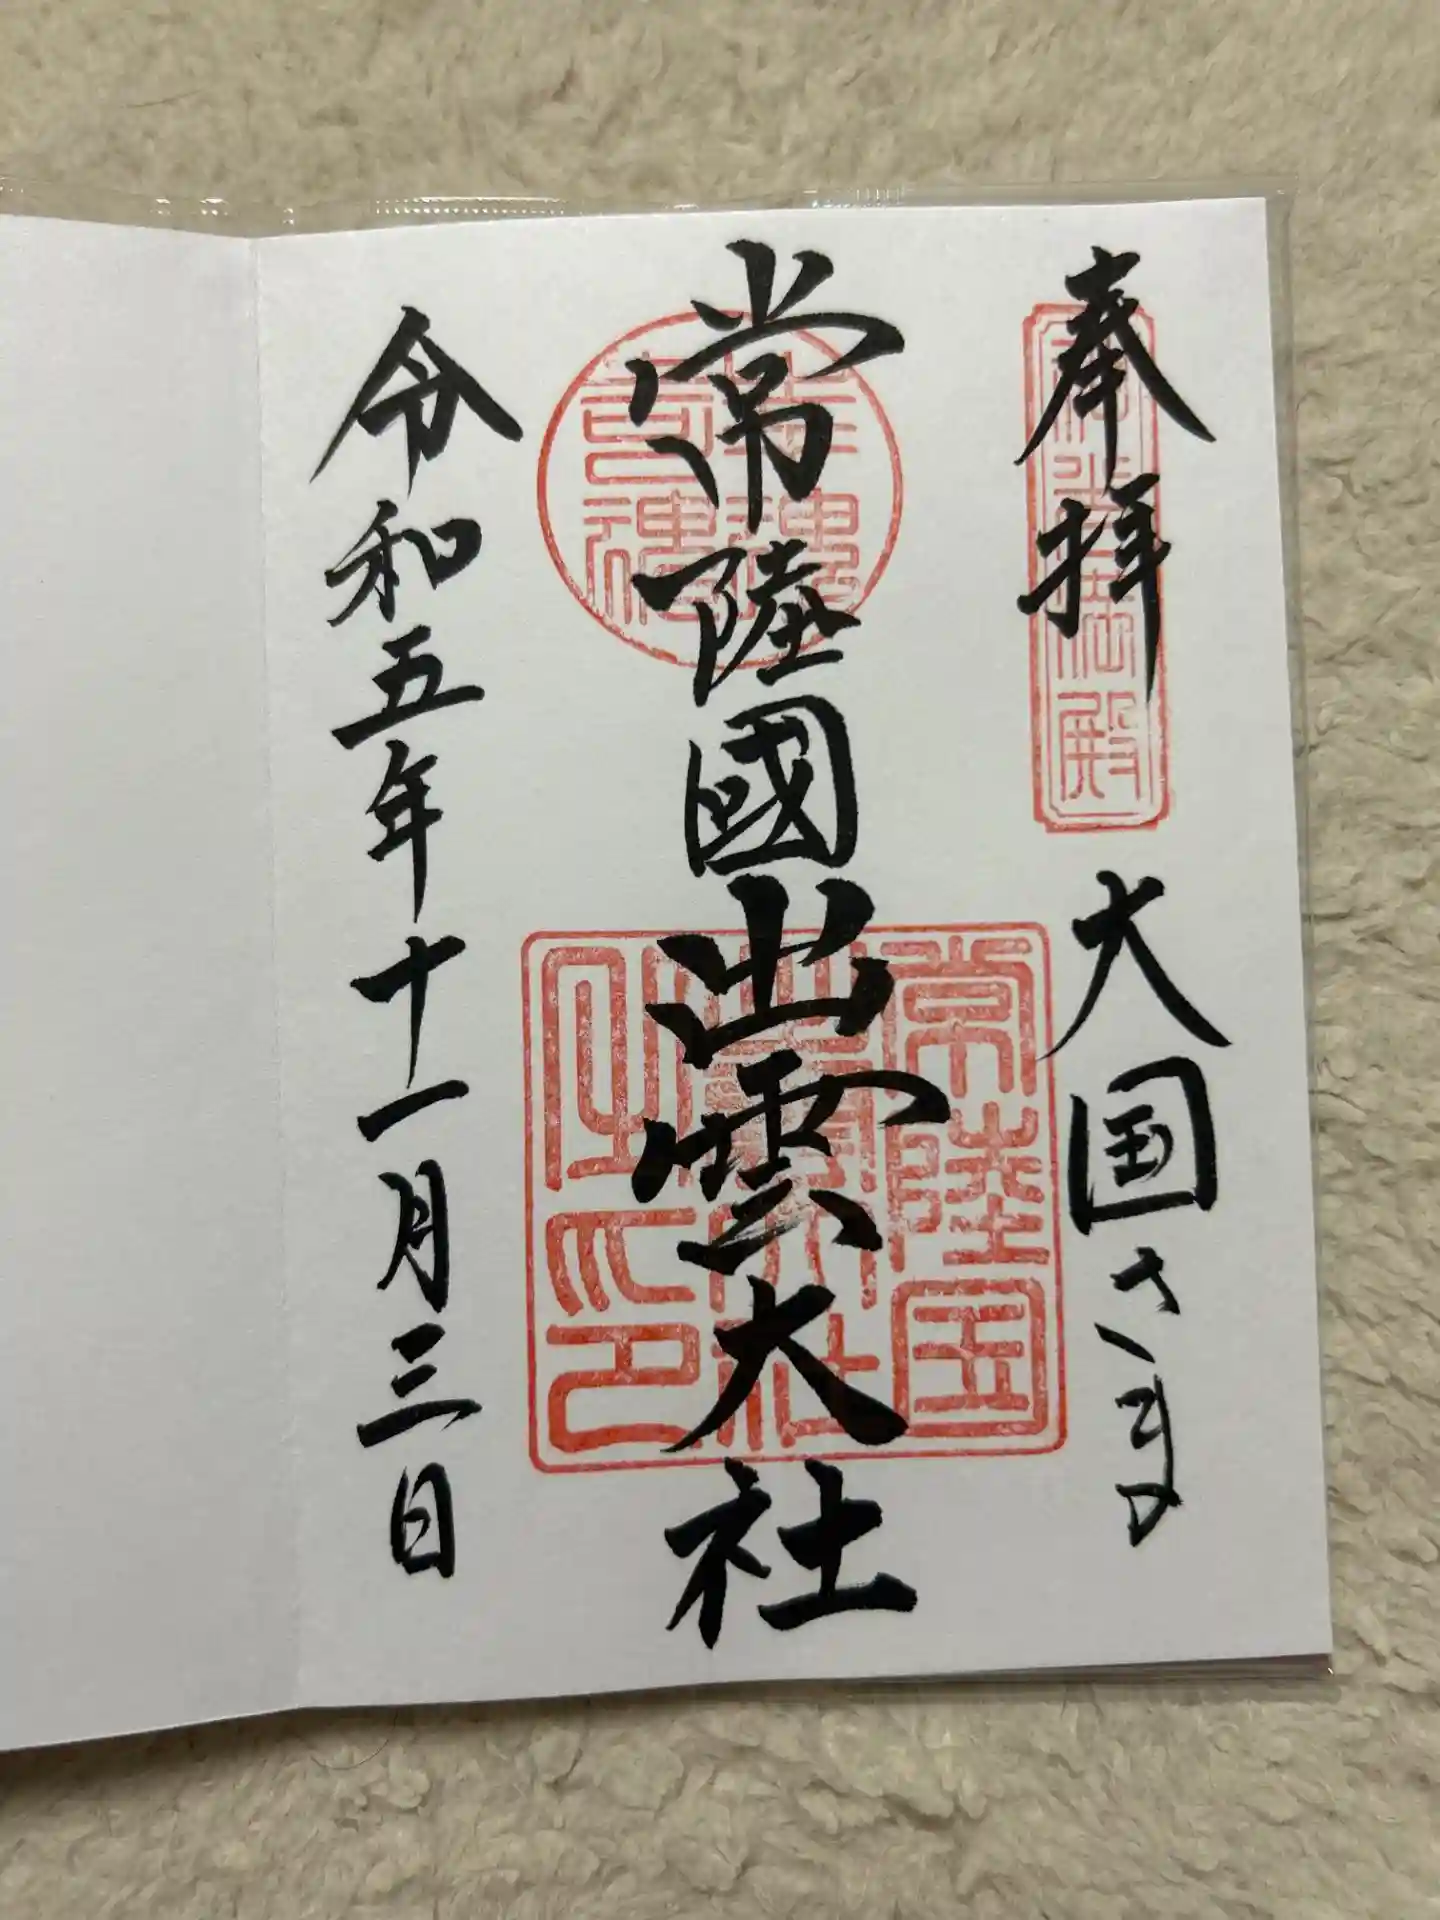 奉拝
大国さま
常陸國出雲大社
幸魂
奇魂
常陸国
出雲大社
之印
令和五年十一月三日